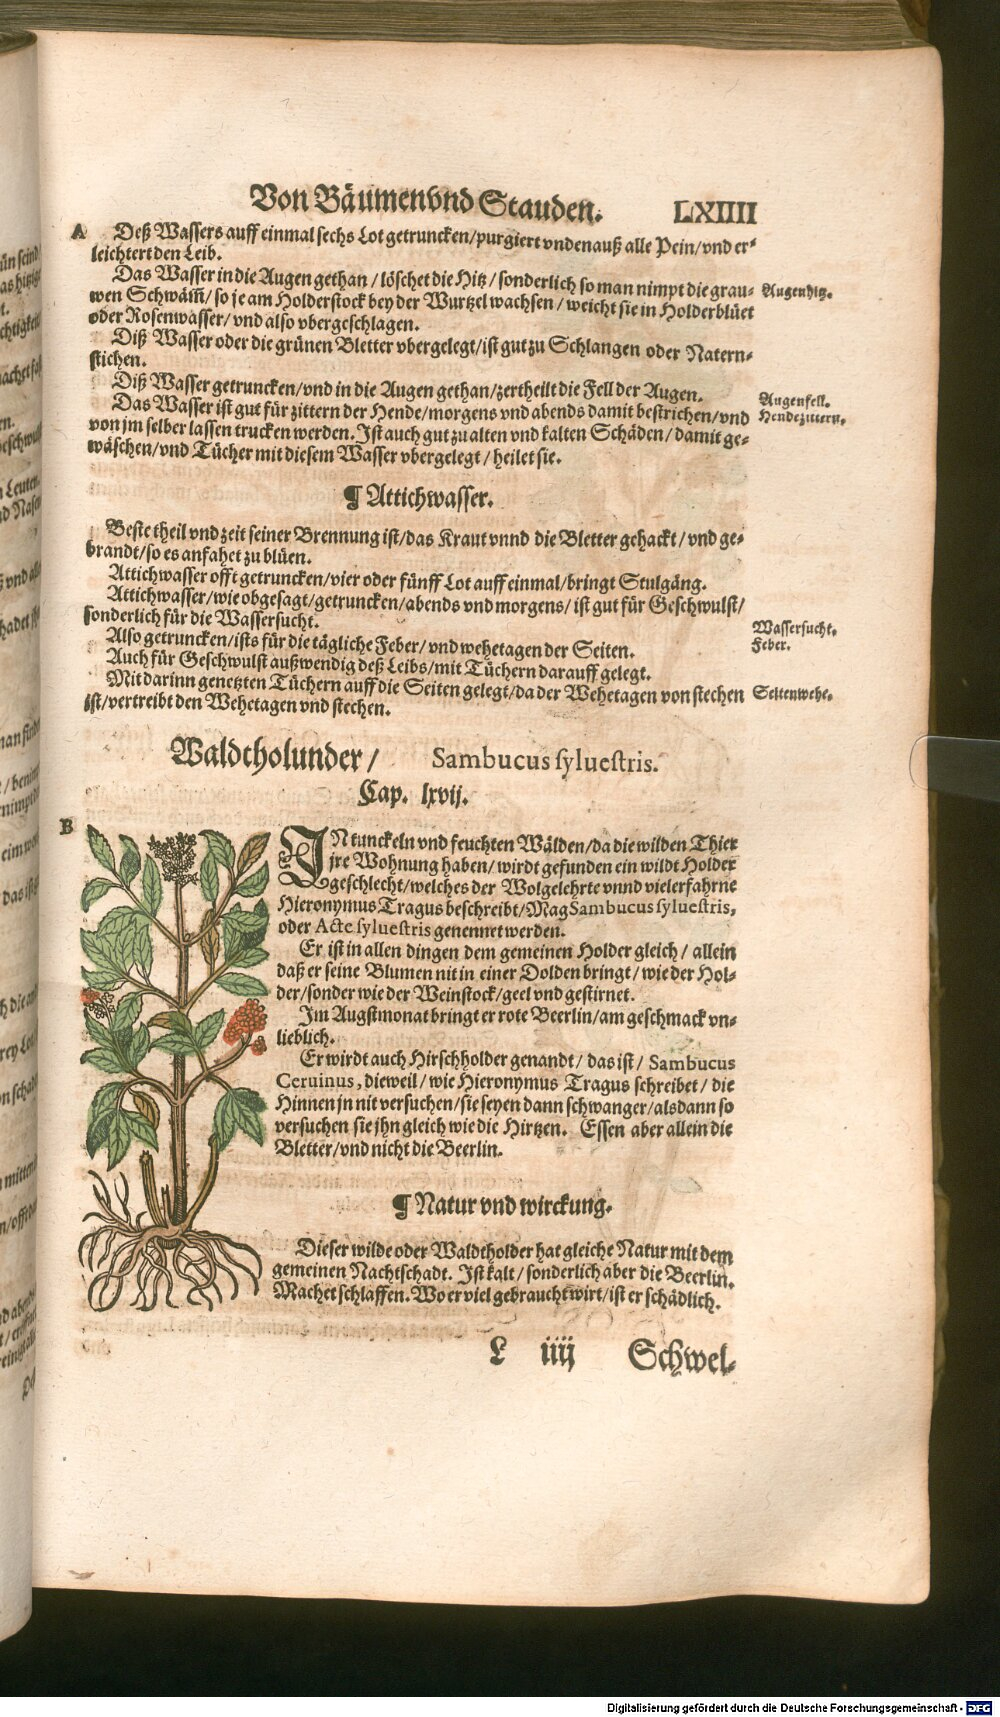 Von Bäumen vnd Stauden. LXIIII
A Deß Wassers auff einmal sechs Lot getruncken/purgiert vnden auß alle Pein/vnd er-
leichtert den Leib.
Das Wasser in die Augen gethan/löschet die Hitz/sonderlich so man nimpt die grau-
wen Schwäm̃/so je am Holderstock bey der Wurtzel wachsen/weicht sie in Holderblüet
oder Rosenwasser/vnd also vbergeschlagen.
Augenhitz.
Diß Wasser oder die grünen Bletter vbergelegt/ist gut zu Schlangen oder Natern-
stichen.
Diß Wasser getruncken/vnd in die Augen gethan/zertheilt die Fell der Augen.
Augenfell.
Das Wasser ist gut für zittern der Hende/morgens vnd abends damit bestrichen/vnd
Hendezittern.
von jm selber lassen trucken werden. Ist auch gut zu alten vnd kalten Schäden/damit ge-
wäschen/vnd Tücher mit diesem Wasser vbergelegt/heilet sie.
¶ Attichwasser.
Beste theil vnd zeit seiner Brennung ist/das Kraut vnnd die Bletter gehackt/vnd ge-
brandt/so es anfahet zu blüen.
Attichwasser offt getruncken/vier oder fünff Lot auff einmal/bringt Stulgäng.
Attichwasser/wie obgesagt/getruncken/abends vnd morgens/ist gut für Geschwulst/
sonderlich für die Wassersucht.
Wassersucht.
Also getruncken/ists für die tägliche Feber/vnd wehetagen der Seiten.
Feber.
Auch für Geschwulst außwendig deß Leibs/mit Tüchern darauff gelegt.
Mit darinn genetzten Tüchern auff die Seiten gelegt/da der Wehetagen von stechen
Seitenwehe.
ist/vertreibt den Wehetagen vnd stechen.
Waldtholunder/ Sambucus syluestris.
Cap. lxvij.
B
IN tunckeln vnd feuchten Wälden/da die wilden Thier
jre Wohnung haben/wirdt gefunden ein wildt Holder
geschlecht/welches der Wolgelehrte vnnd vielerfahrne
Hieronymus Tragus beschreibt/Mag Sambucus syluestris,
oder Acte syluestris genennet werden.
Er ist in allen dingen dem gemeinen Holder gleich/allein
daß er seine Blumen nit in einer Dolden bringt/wie der Hol-
der/sonder wie der Weinstock/geel vnd gestirnet.
Im Augstmonat bringt er rote Beerlin/am geschmack vn-
lieblich.
Er wirdt auch Hirschholder genandt/das ist/Sambucus
Ceruinus, dieweil/wie Hieronymus Tragus schreibet/die
Hinnen jn nit versuchen/sie seyen dann schwanger/alsdann so
versuchen sie jhn gleich wie die Hirtzen. Essen aber allein die
Bletter/vnd nicht die Beerlin.
¶ Natur vnd wirckung.
Dieser wilde oder Waldtholder hat gleiche Natur mit dem
gemeinen Nachtschadt. Ist kalt/sonderlich aber die Beerlin.
Machet schlaffen. Wo er viel gebraucht wirt/ist er schädlich.
L iiij Schwel-
Digitalisierung gefördert durch die Deutsche Forschungsgemeinschaft - DFG